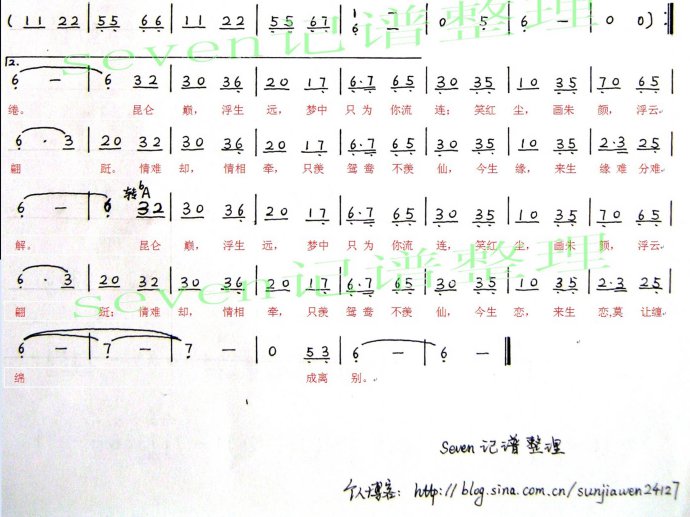 ( 11 22 | 55 66 | 11 22 | 55 67 | 1 6 – – | 0 5 | 6 – | 0 0 ) :‖
2.
6 – | 6 32 | 30 36 | 20 17 | 6·7 65 | 30 35 | 10 35 | 70 65 |
绻。 昆仑 巅, 浮生 远, 梦中 只为 你流 连; 笑红 尘, 画朱 颜, 浮云
6 · 3 | 20 32 | 30 36 | 20 17 | 6·7 65 | 30 35 | 10 35 | 2·3 25 |
翩 跹。 情难 却, 情相 牵, 只羡 鸳鸯 不羡 仙, 今生 缘, 来生 缘难 分难
转♭A
6 – | 6 32 | 30 36 | 20 17 | 6·7 65 | 30 35 | 10 35 | 70 65 |
解。 昆仑 巅, 浮生 远, 梦中 只为 你流 连, 笑红 尘, 画朱 颜, 浮云
6 · 3 | 20 32 | 30 36 | 20 17 | 6·7 65 | 30 35 | 10 35 | 2·3 25 |
翩 跹; 情难 却, 情相 牵, 只羡 鸳鸯 不羡 仙, 今生 恋, 来生 恋,莫 让缠
6 – | 7 – | 7 – | 0 53 | 6 – | 6 – ‖
绵 成离 别。
seven记谱整理
seven记谱整理
seven记谱整理
Seven 记谱整理
个人博客: http://blog.sina.com.cn/sunjiawen24127